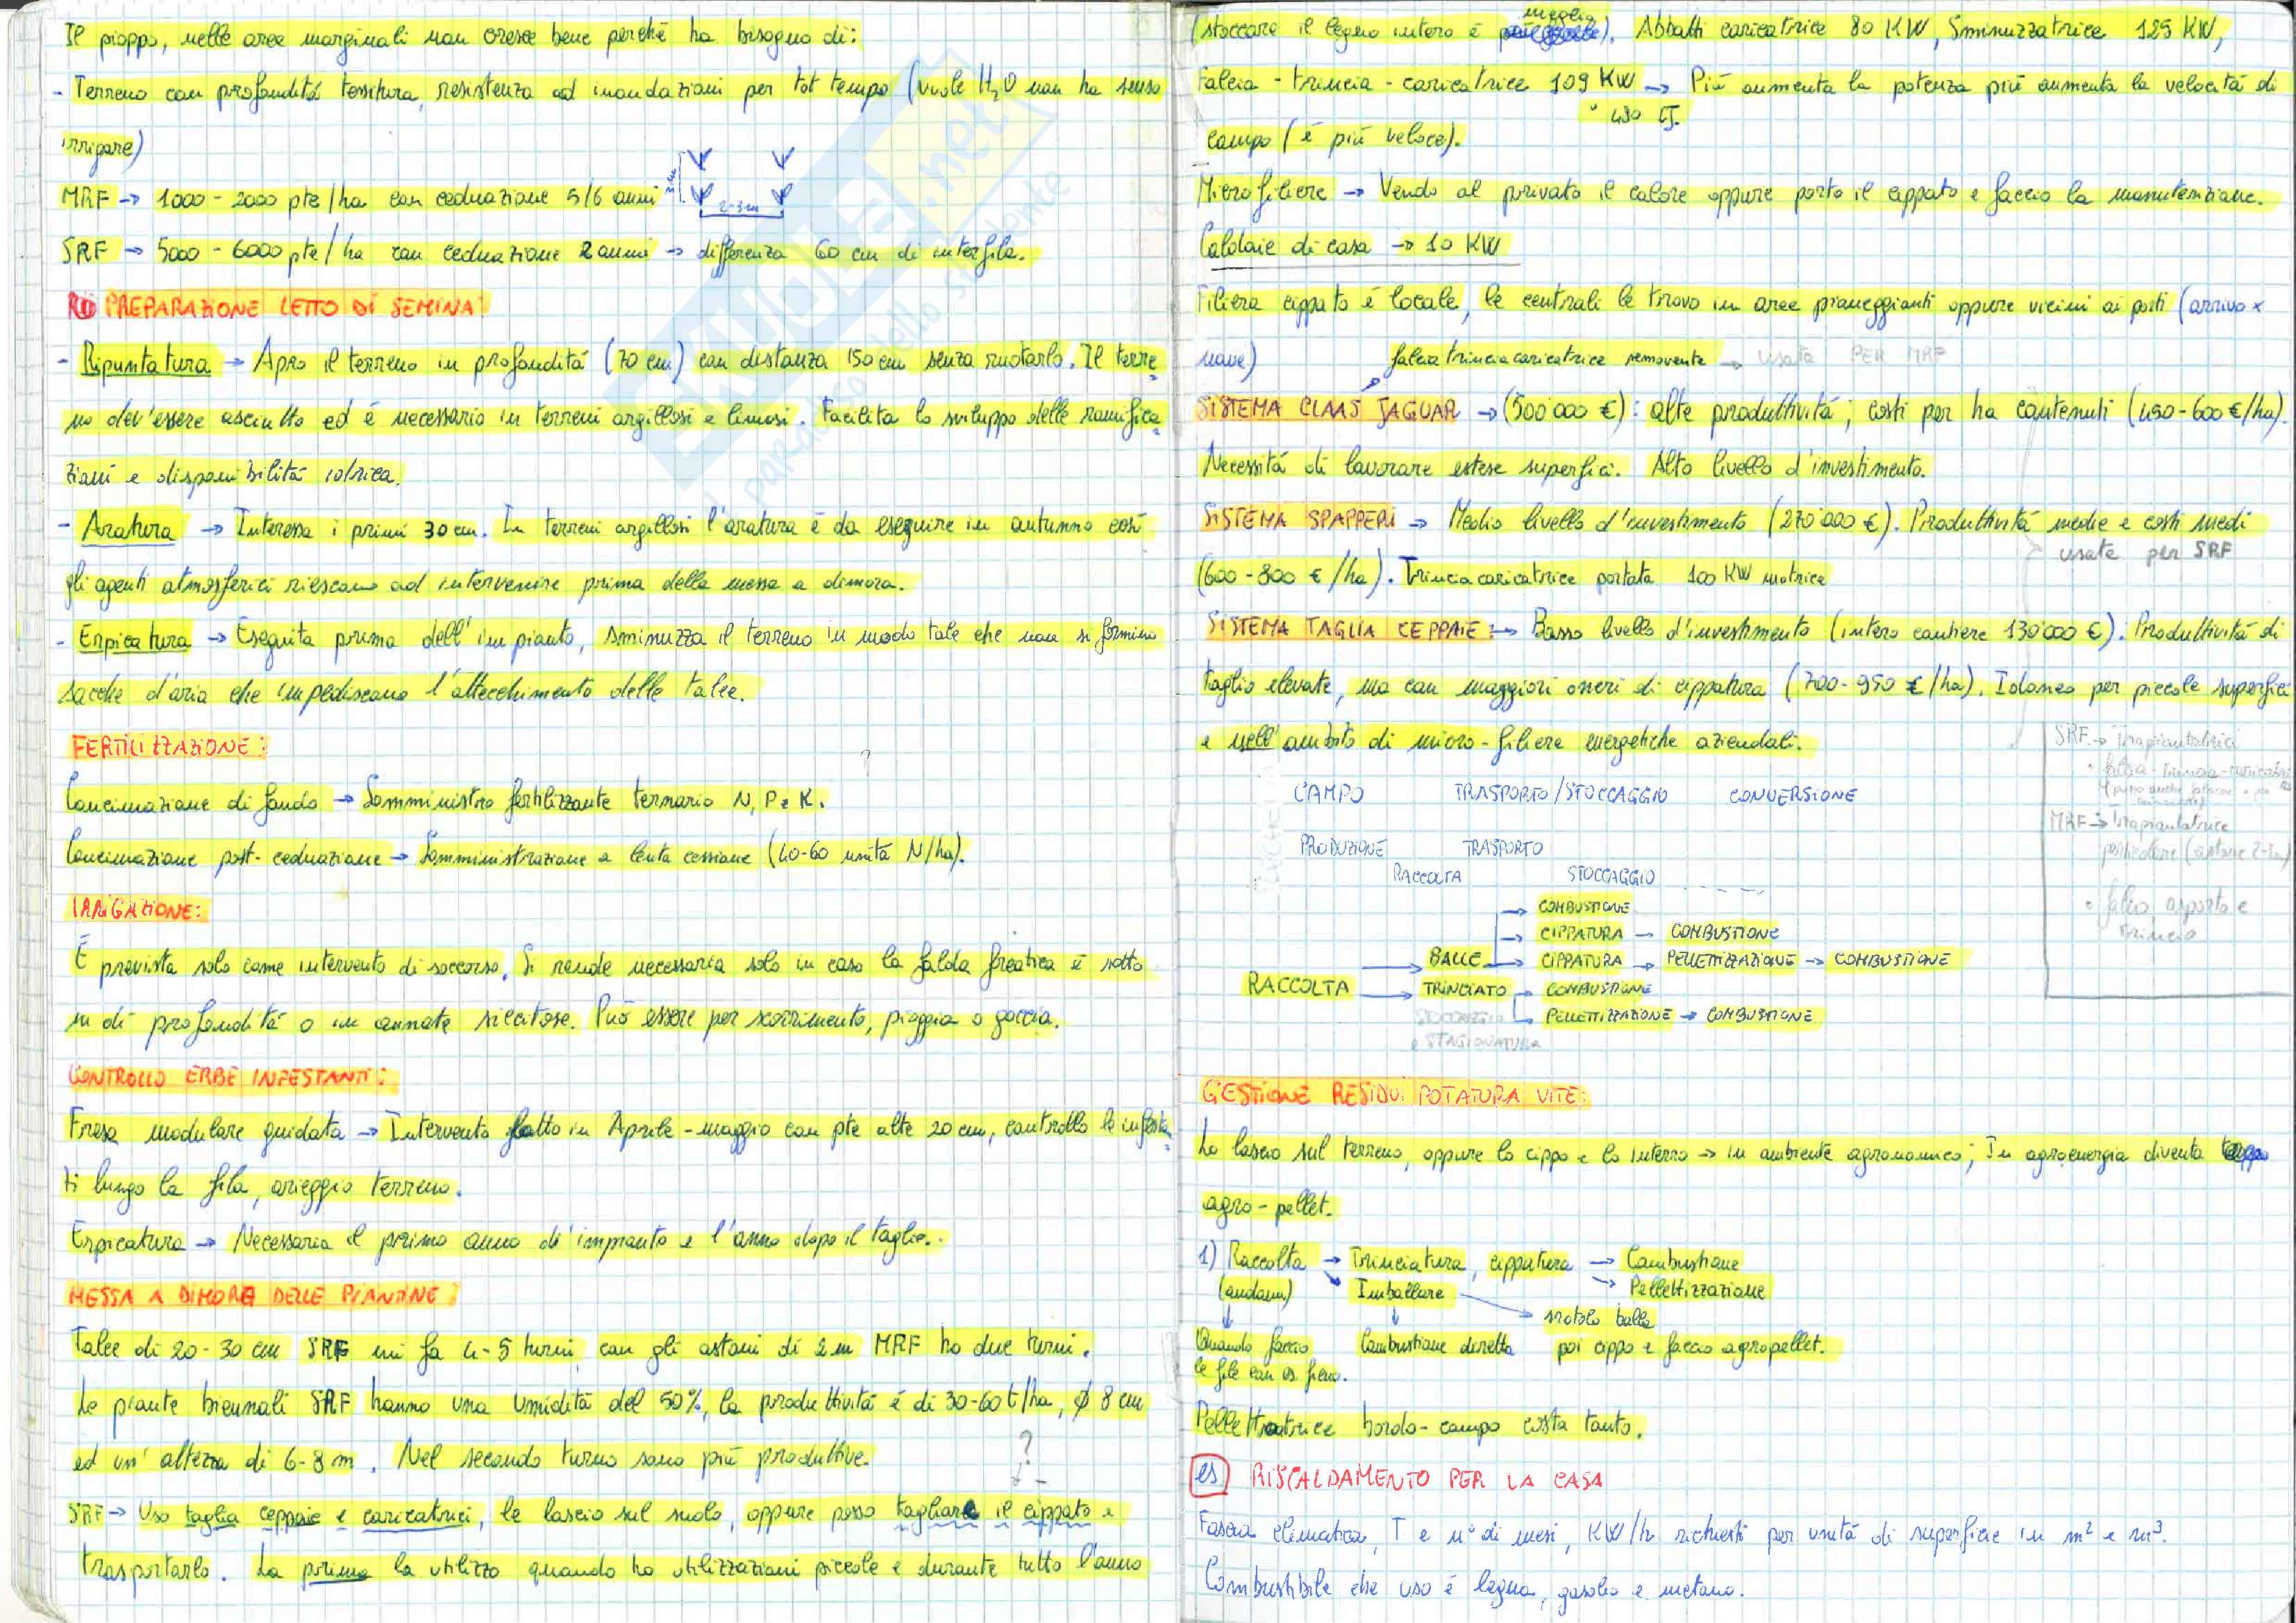 Il pioppo, nelle aree marginali non cresce bene perché ha bisogno di:
- Terreno con profondità tessitura, resistenza ad inondazioni per tot tempo (vuole H2O non ha senso
irrigare)
MRF → 1000 - 2000 pte/ha con ceduazione 5/6 anni
3m
2-3m
SRF → 5000 - 6000 pte/ha con ceduazione 2 anni → differenza 60 cm di interfila.
PREPARAZIONE LETTO DI SEMINA:
- Ripuntatura → Apro il terreno in profondità (70 cm) con distanza 150 cm senza ruotarlo. Il terre
no dev'essere asciutto ed è necessario in terreni argillosi e limosi. Facilita lo sviluppo delle ramifica
zioni e disponibilità idrica.
- Aratura → Interessa i primi 30 cm. In terreni argillosi l'aratura è da eseguire in autunno così
gli agenti atmosferici riescono ad intervenire prima della messa a dimora.
- Erpicatura → Eseguita prima dell'impianto, sminuzza il terreno in modo tale che non si formino
sacche d'aria che impediscono l'attecchimento delle talee.
FERTILIZZAZIONE:
?
Concimazione di fondo → Somministro fertilizzante ternario N, P e K.
Concimazione post-ceduazione → Somministrazione a lenta cessione (40-60 unità N/ha).
IRRIGAZIONE:
È prevista solo come intervento di soccorso. Si rende necessaria solo in caso la falda freatica è sotto
m di profondità o in annate siccitose. Può essere per scorrimento, pioggia o goccia.
CONTROLLO ERBE INFESTANTI:
Fresa modulare guidata → Intervento fatto in Aprile-maggio con pte alte 20 cm, controllo le infestan
ti lungo la fila, arieggio terreno.
Erpicatura → Necessaria il primo anno di impianto e l'anno dopo il taglio.
MESSA A DIMORA DELLE PIANTINE:
Talee di 20-30 cm SRF mi fa 4-5 turni, con gli astoni di 2 m MRF ho due turni.
Le piante biennali SRF hanno una umidità del 50%, la produttività è di 30-60 t/ha, ø 8 cm
ed un'altezza di 6-8 m. Nel secondo turno sono più produttive.
?
SRF → Uso taglia ceppaie e caricatrici, le lascio sul suolo, oppure posso tagliare il cippato e
trasportarlo. La prima la utilizzo quando ho utilizzazioni piccole e durante tutto l'anno
(stoccare il legno intero è meglio). Abbatti caricatrice 80 KW, Sminuzzatrice 125 KW,
Falcia - trincia - caricatrice 109 KW → Più aumenta la potenza più aumenta la velocità di
campo (è più veloce).
Microfiliere → Vendo al privato il calore oppure porto il cippato e faccio la manutenzione.
Caldaie di casa → 10 KW
Filiera cippato è locale, le centrali le trovo in aree pianeggianti oppure vicini ai porti (arrivo x
nave)
falcia trincia caricatrice semovente → usata PER MRF
SISTEMA CLAAS JAGUAR → (500'000 €): alte produttività; costi per ha contenuti (450-600 €/ha).
Necessità di lavorare estese superfici. Alto livello d'investimento.
SISTEMA SPAPPERI → Medio livello d'investimento (270'000 €). Produttività medie e costi medi
usate per SRF
(600-800 €/ha). Trinciacaricatrice portata 100 KW motrice
SISTEMA TAGLIA CEPPAIE: → Basso livello d'investimento (intero cantiere 130'000 €). Produttività di
taglio elevate, ma con maggiori oneri di cippatura (700-950 €/ha). Idoneo per piccole superfici
e nell'ambito di micro-filiere energetiche aziendali.
CAMPO TRASPORTO/STOCCAGGIO CONVERSIONE
PRODUZIONE TRASPORTO
RACCOLTA STOCCAGGIO
SRF → Trapiantatrici
• falcia-trincia-caricatri
MRF → trapiantatrice
particolare (astone 2-3m)
• falcio, asporto e
trincio
→ COMBUSTIONE
→ CIPPATURA → COMBUSTIONE
BALLE → CIPPATURA → PELLETTIZZAZIONE → COMBUSTIONE
RACCOLTA → TRINCIATO → COMBUSTIONE
STOCCAGGIO → PELLETTIZZAZIONE → COMBUSTIONE
e STAGIONATURA
GESTIONE RESIDUI POTATURA VITE:
Lo lascio sul terreno, oppure lo cippo e lo interro → in ambiente agronomico; In agroenergia diventa
agro-pellet.
1) Raccolta → Trinciatura, cippatura → Combustione
(andana) → Imballare → Pellettizzazione
→ rotolo balle
Quando faccio Combustione diretta poi cippo e faccio agropellet.
le file con es. fieno.
Pellettatrice bordo-campo costa tanto.
es RISCALDAMENTO PER LA CASA
Fascia climatica, T e n° di mesi, KW/h richiesti per unità di superficie in m² e m³.
Combustibile che uso è legna, gasolio e metano.